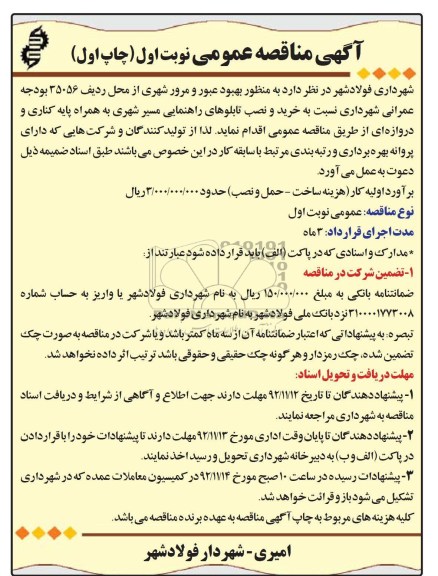 آگهی مناقصه عمومی نوبت اول (چاپ اول)
شهرداری فولادشهر در نظر دارد به منظور بهبود عبور و مرور شهری از محل ردیف ۳۵۰۵۶ بودجه
عمرانی شهرداری نسبت به خرید و نصب تابلوهای راهنمایی مسیر شهری به همراه پایه کناری و
دروازه‌ای از طریق مناقصه عمومی اقدام نماید. لذا از تولیدکنندگان و شرکت‌هایی که دارای
پروانه بهره برداری و رتبه بندی مرتبط با سابقه کار در این خصوص می‌باشند طبق اسناد ضمیمه ذیل
دعوت به عمل می آورد.
برآورد اولیه کار (هزینه ساخت - حمل و نصب) حدود ۳/۰۰۰/۰۰۰/۰۰۰ ریال
نوع مناقصه: عمومی نوبت اول
مدت اجرای قرارداد: ۳ ماه
*مدارک و اسنادی که در پاکت (الف) باید قرار داده شود عبارتند از:
۱- تضمین شرکت در مناقصه
ضمانتنامه بانکی به مبلغ ۱۵۰/۰۰۰/۰۰۰ ریال به نام شهرداری فولادشهر یا واریز به حساب شماره
۳۱۰۰۰۰۱۷۷۳۰۰۸ نزد بانک ملی فولادشهر به نام شهرداری فولادشهر.
تبصره: به پیشنهاداتی که اعتبار ضمانتنامه آن از سه ماه کمتر باشد و یا شرکت در مناقصه به صورت چک
تضمین شده، چک رمزدار و هر گونه چک حقیقی و حقوقی باشد ترتیب اثر داده نخواهد شد.
مهلت دریافت و تحویل اسناد:
۱- پیشنهاددهندگان تا تاریخ ۹۲/۱۱/۱۲ مهلت دارند جهت اطلاع و آگاهی از شرایط و دریافت اسناد
مناقصه به شهرداری مراجعه نمایند.
۲- پیشنهاددهندگان تا پایان وقت اداری مورخ ۹۲/۱۱/۱۳ مهلت دارند تا پیشنهادات خود را با قراردادن
در پاکت (الف و ب) به دبیرخانه شهرداری تحویل و رسید اخذ نمایند.
۳- پیشنهادات رسیده در ساعت ۱۰ صبح مورخ ۹۲/۱۱/۱۴ در کمیسیون معاملات عمده که در شهرداری
تشکیل می شود باز و قرائت خواهد شد.
کلیه هزینه های مربوط به چاپ آگهی مناقصه به عهده برنده مناقصه می باشد.
امیری - شهردار فولادشهر